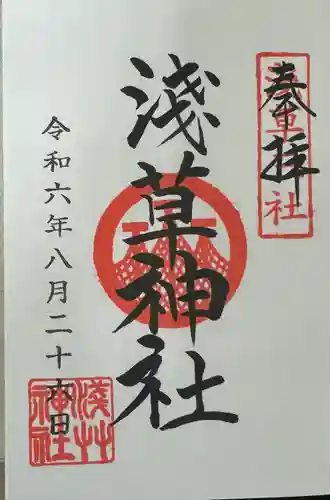 奉拝
浅草社
淺草神社
令和六年八月二十六日
淺艸神社